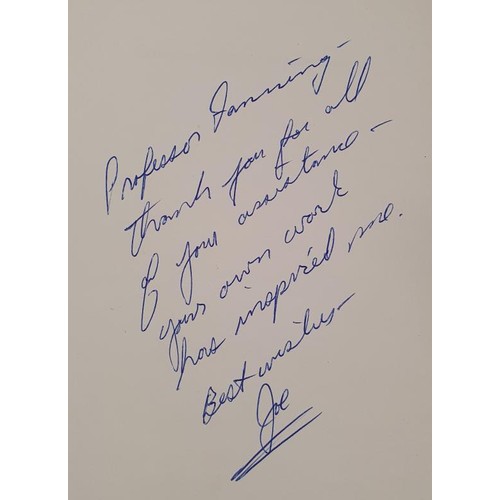 Professor Fanning -
Thank you for all
of your assistance -
your own work
has inspired me.
Best wishes -
Joe